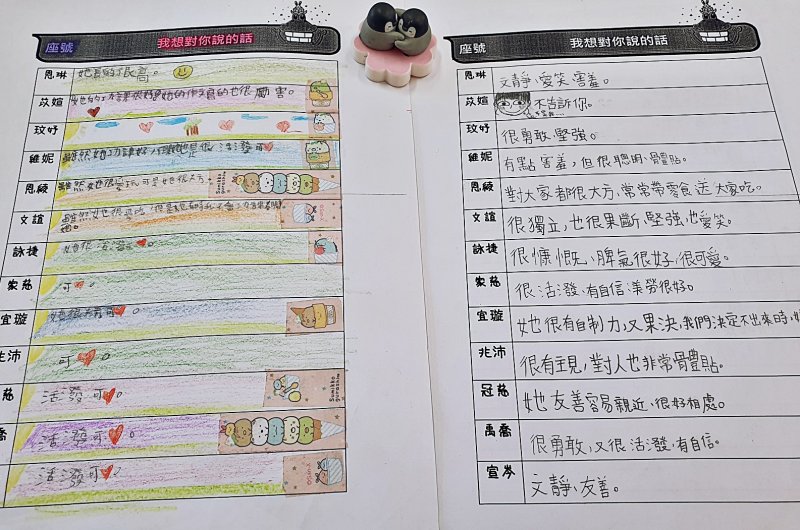 座號 我想對你說的話
恩琳 她真的很高。
苡媗
玟妤
維妮 雖然她
恩綾 雖然她很愛玩,可是她很大方。
文誼
詠捷 她很活潑。
可。
宜璇
兆沛 可。
慈 活潑可。
喬 活潑可。
活潑可。
Sumikko gurashi
座號 我想對你說的話
恩琳 文靜、愛笑、害羞。
苡媗 不告訴你。
玟妤 很勇敢、堅強。
維妮 有點害羞,但很聰明、體貼。
恩綾 對大家都很大方、常常帶零食送大家吃。
文誼 很獨立,也很果斷、堅強,也愛笑。
詠捷 很慷慨、脾氣很好、很可愛。
家慈 很活潑、有自信、美勞很好。
宜璇 她很有自制力,又果決,我們決定不出來時,
兆沛 很有主見,對人也非常體貼。
冠慈 她友善容易親近、很好相處。
禹喬 很勇敢,又很活潑、有自信。
宣岑 文靜、友善。